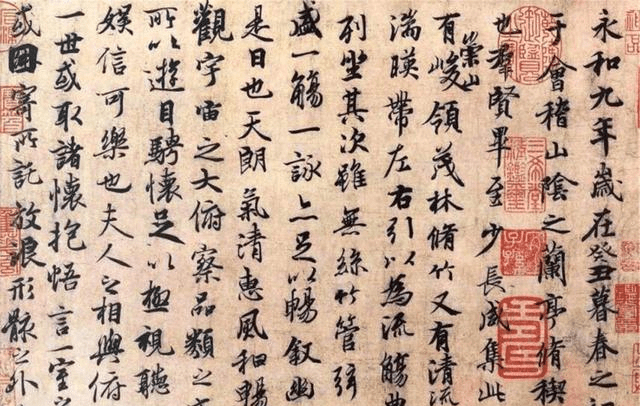 永和九年歲在癸丑暮春之初
于會稽山陰之蘭亭脩稧
也羣賢畢至少長咸集此
有崇山峻領茂林脩竹又有清流
湍暎帶左右引以為流觴曲
列坐其次雖無絲竹管弦
盛一觴一詠亦足以暢叙幽
是日也天朗氣清惠風和暢
觀宇宙之大俯察品類之
所以遊目騁懷足以極視聽
娛信可樂也夫人之相與俯
一世或取諸懷抱悟言一室
或因寄所託放浪形骸之外